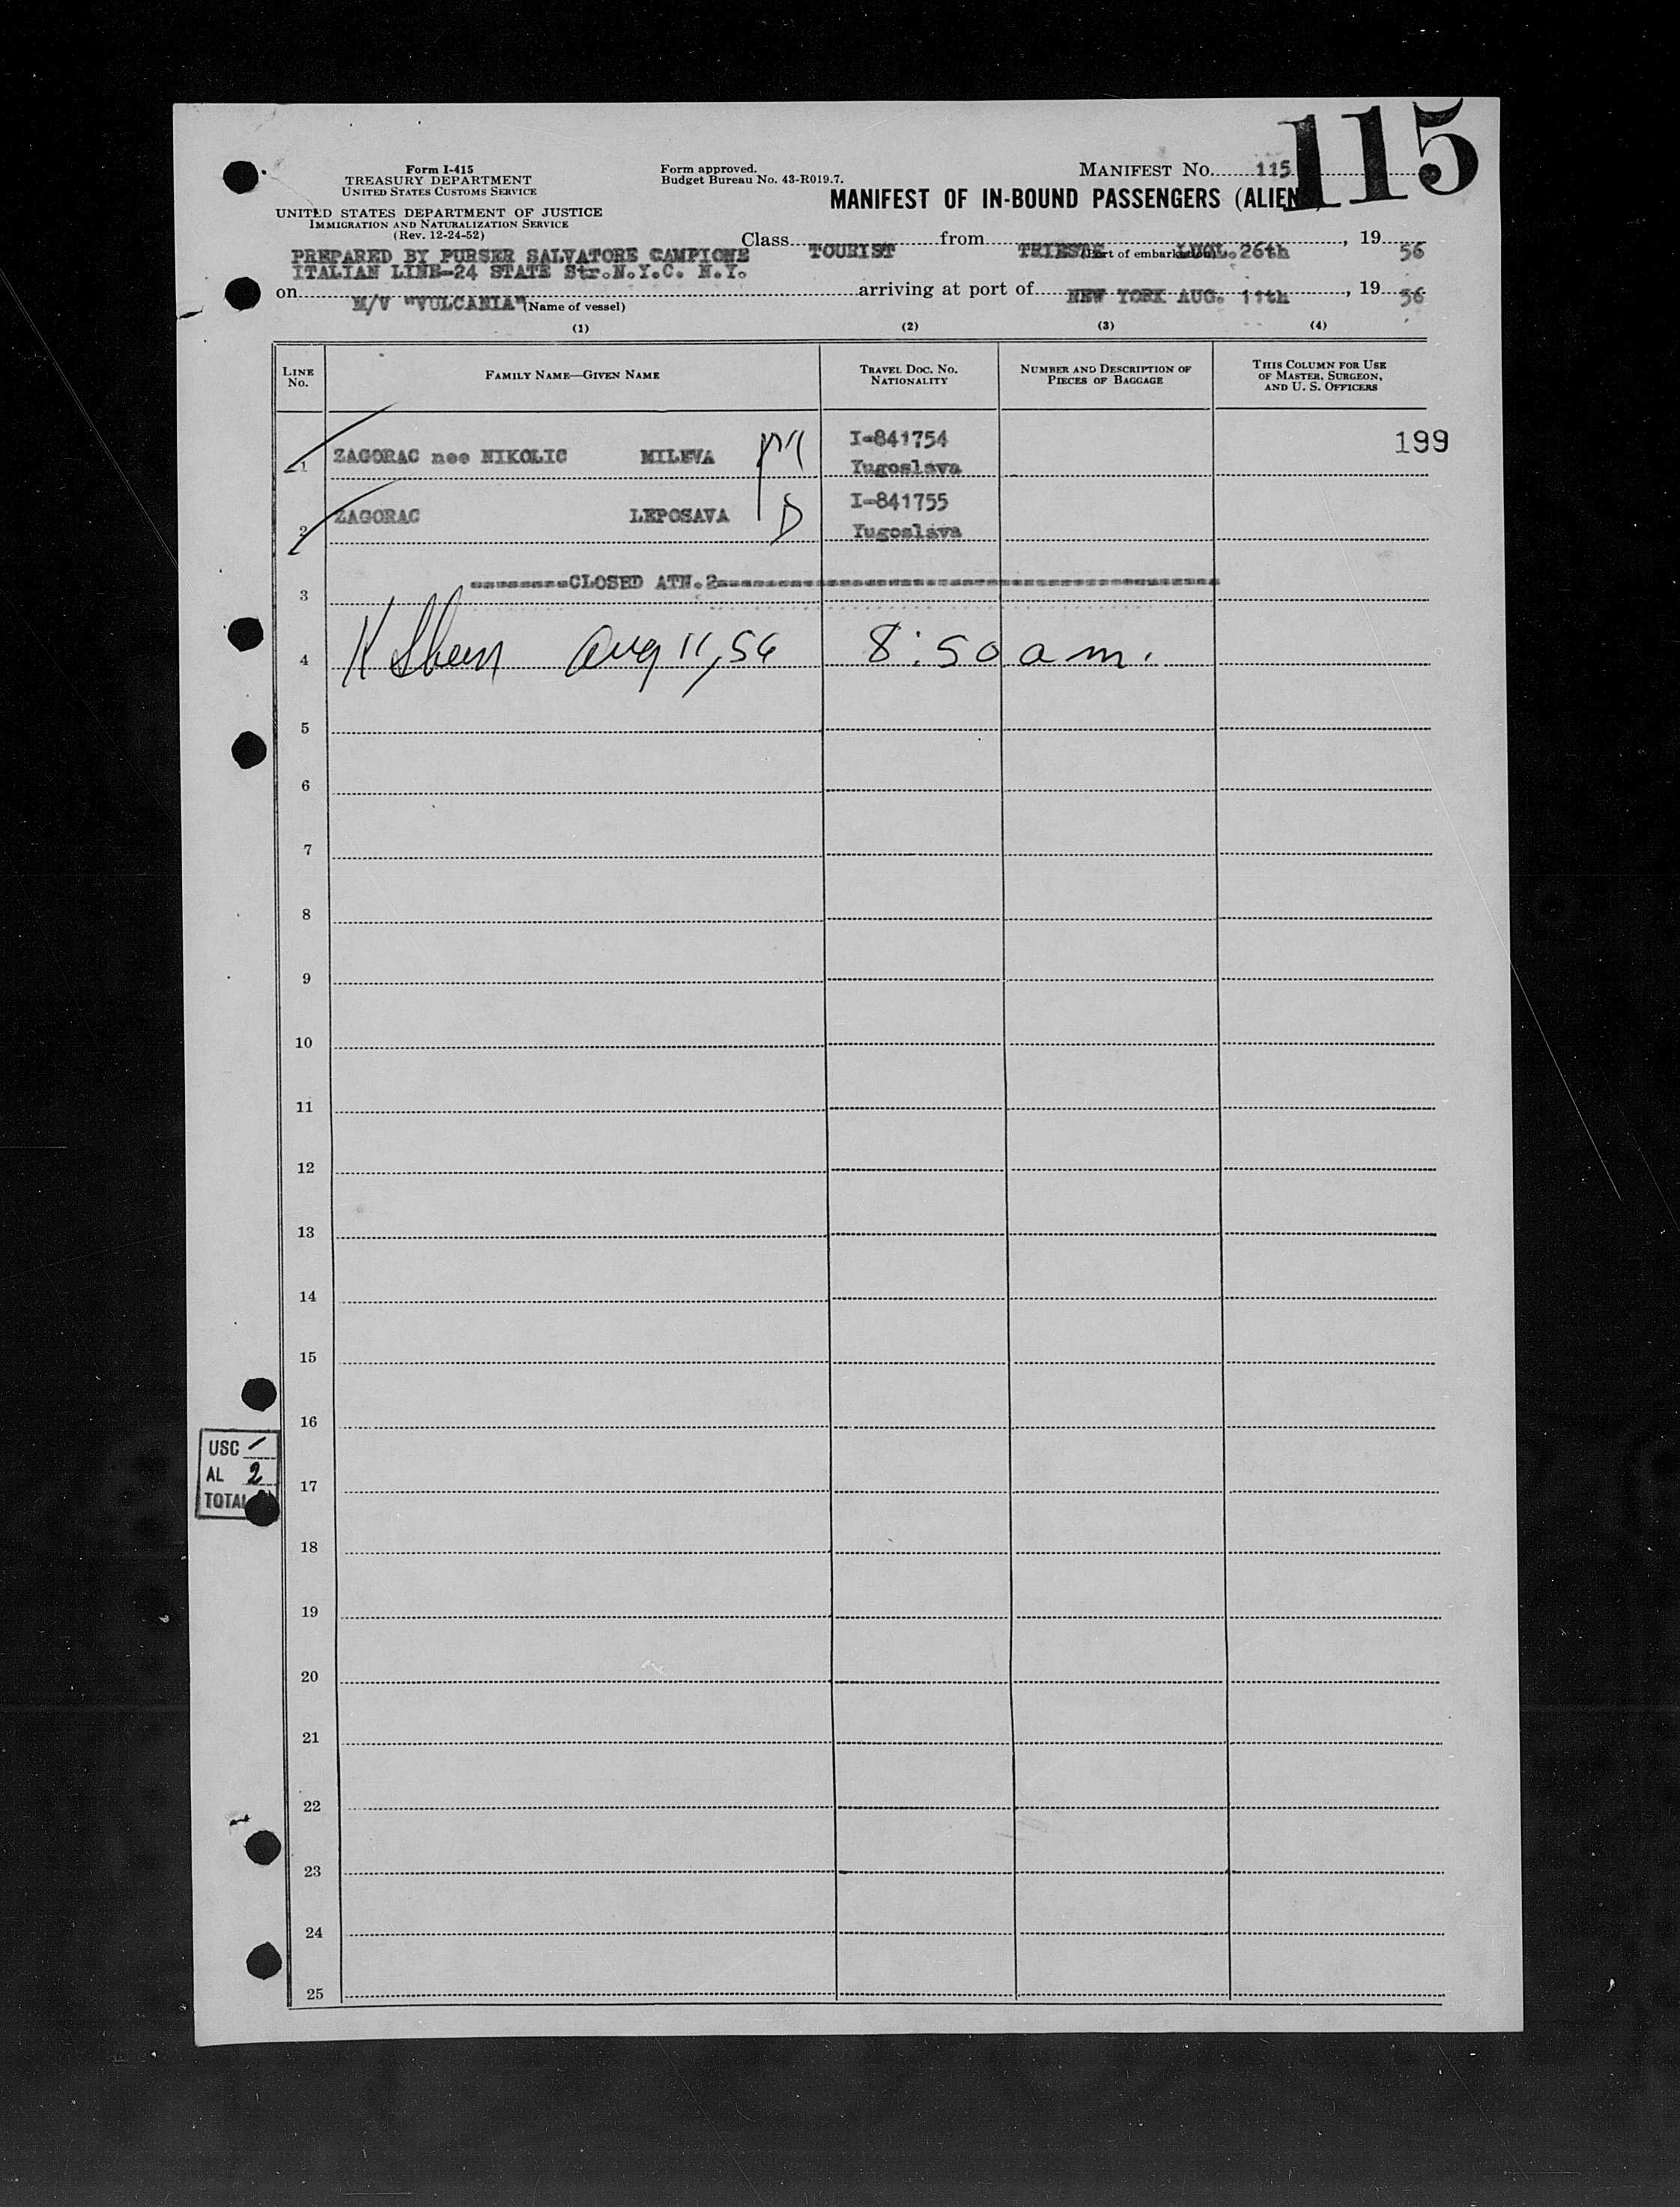 115
Form I-415
TREASURY DEPARTMENT
UNITED STATES CUSTOMS SERVICE
UNITED STATES DEPARTMENT OF JUSTICE
IMMIGRATION AND NATURALIZATION SERVICE
(Rev. 12-24-52)
Form approved.
Budget Bureau No. 43-R019.7.
MANIFEST No. 115
MANIFEST OF IN-BOUND PASSENGERS (ALIEN
PREPARED BY PURSER SALVATORE CAMPIONE
ITALIAN LINE-24 STATE Str.N.Y.C. N.Y.
Class TOURIST from TRIESTE LUGL.26th, 19 56
(Port of embarkation)
on M/V "VULCANIA" (Name of vessel) arriving at port of NEW YORK AUG. 11th, 19 56
(1) (2) (3) (4)
LINE No. FAMILY NAME—GIVEN NAME TRAVEL DOC. NO. NATIONALITY NUMBER AND DESCRIPTION OF PIECES OF BAGGAGE THIS COLUMN FOR USE OF MASTER, SURGEON, AND U. S. OFFICERS
1 ZAGORAC nee NIKOLIC MILEVA M I-841754 Yugoslava 199
2 ZAGORAC LEPOSAVA D I-841755 Yugoslava
3 CLOSED ATN.2
4 Aug 11, 56 8:50 a m.
5
6
7
8
9
10
11
12
13
14
15
16
17
18
19
20
21
22
23
24
25
USC /
AL 2
TOTAL